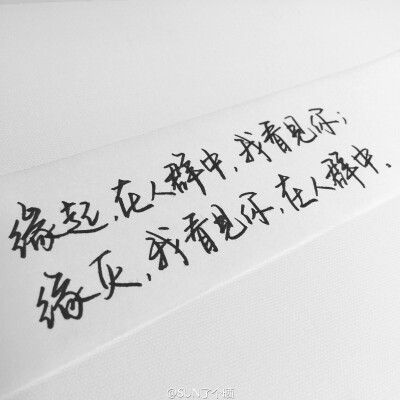 缘起,在人群中,我看见你;
缘灭,我看见你,在人群中、
@SUN了个喵